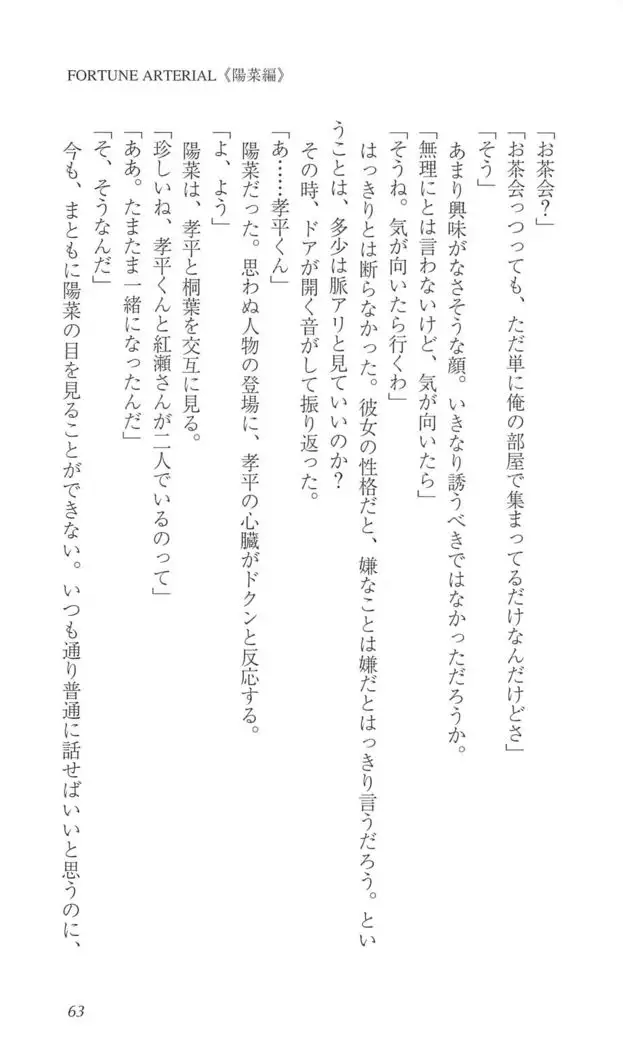 FORTUNE ARTERIAL《陽菜編》
「お茶会？」
「お茶会っつっても、ただ単に俺の部屋で集まってるだけなんだけどさ」
「そう」
あまり興味がなさそうな顔。いきなり誘うべきではなかっただろうか。
「無理にとは言わないけど、気が向いたら」
「そうね。気が向いたら行くわ」
はっきりとは断らなかった。彼女の性格だと、嫌なことは嫌だとはっきり言うだろう。とい
うことは、多少は脈アリと見ていいのか？
その時、ドアが開く音がして振り返った。
「あ……孝平くん」
陽菜だった。思わぬ人物の登場に、孝平の心臓がドクンと反応する。
「よ、よう」
陽菜は、孝平と桐葉を交互に見る。
「珍しいね、孝平くんと紅瀬さんが二人でいるのって」
「ああ。たまたま一緒になったんだ」
「そ、そうなんだ」
今も、まともに陽菜の目を見ることができない。いつも通り普通に話せばいいと思うのに、
63